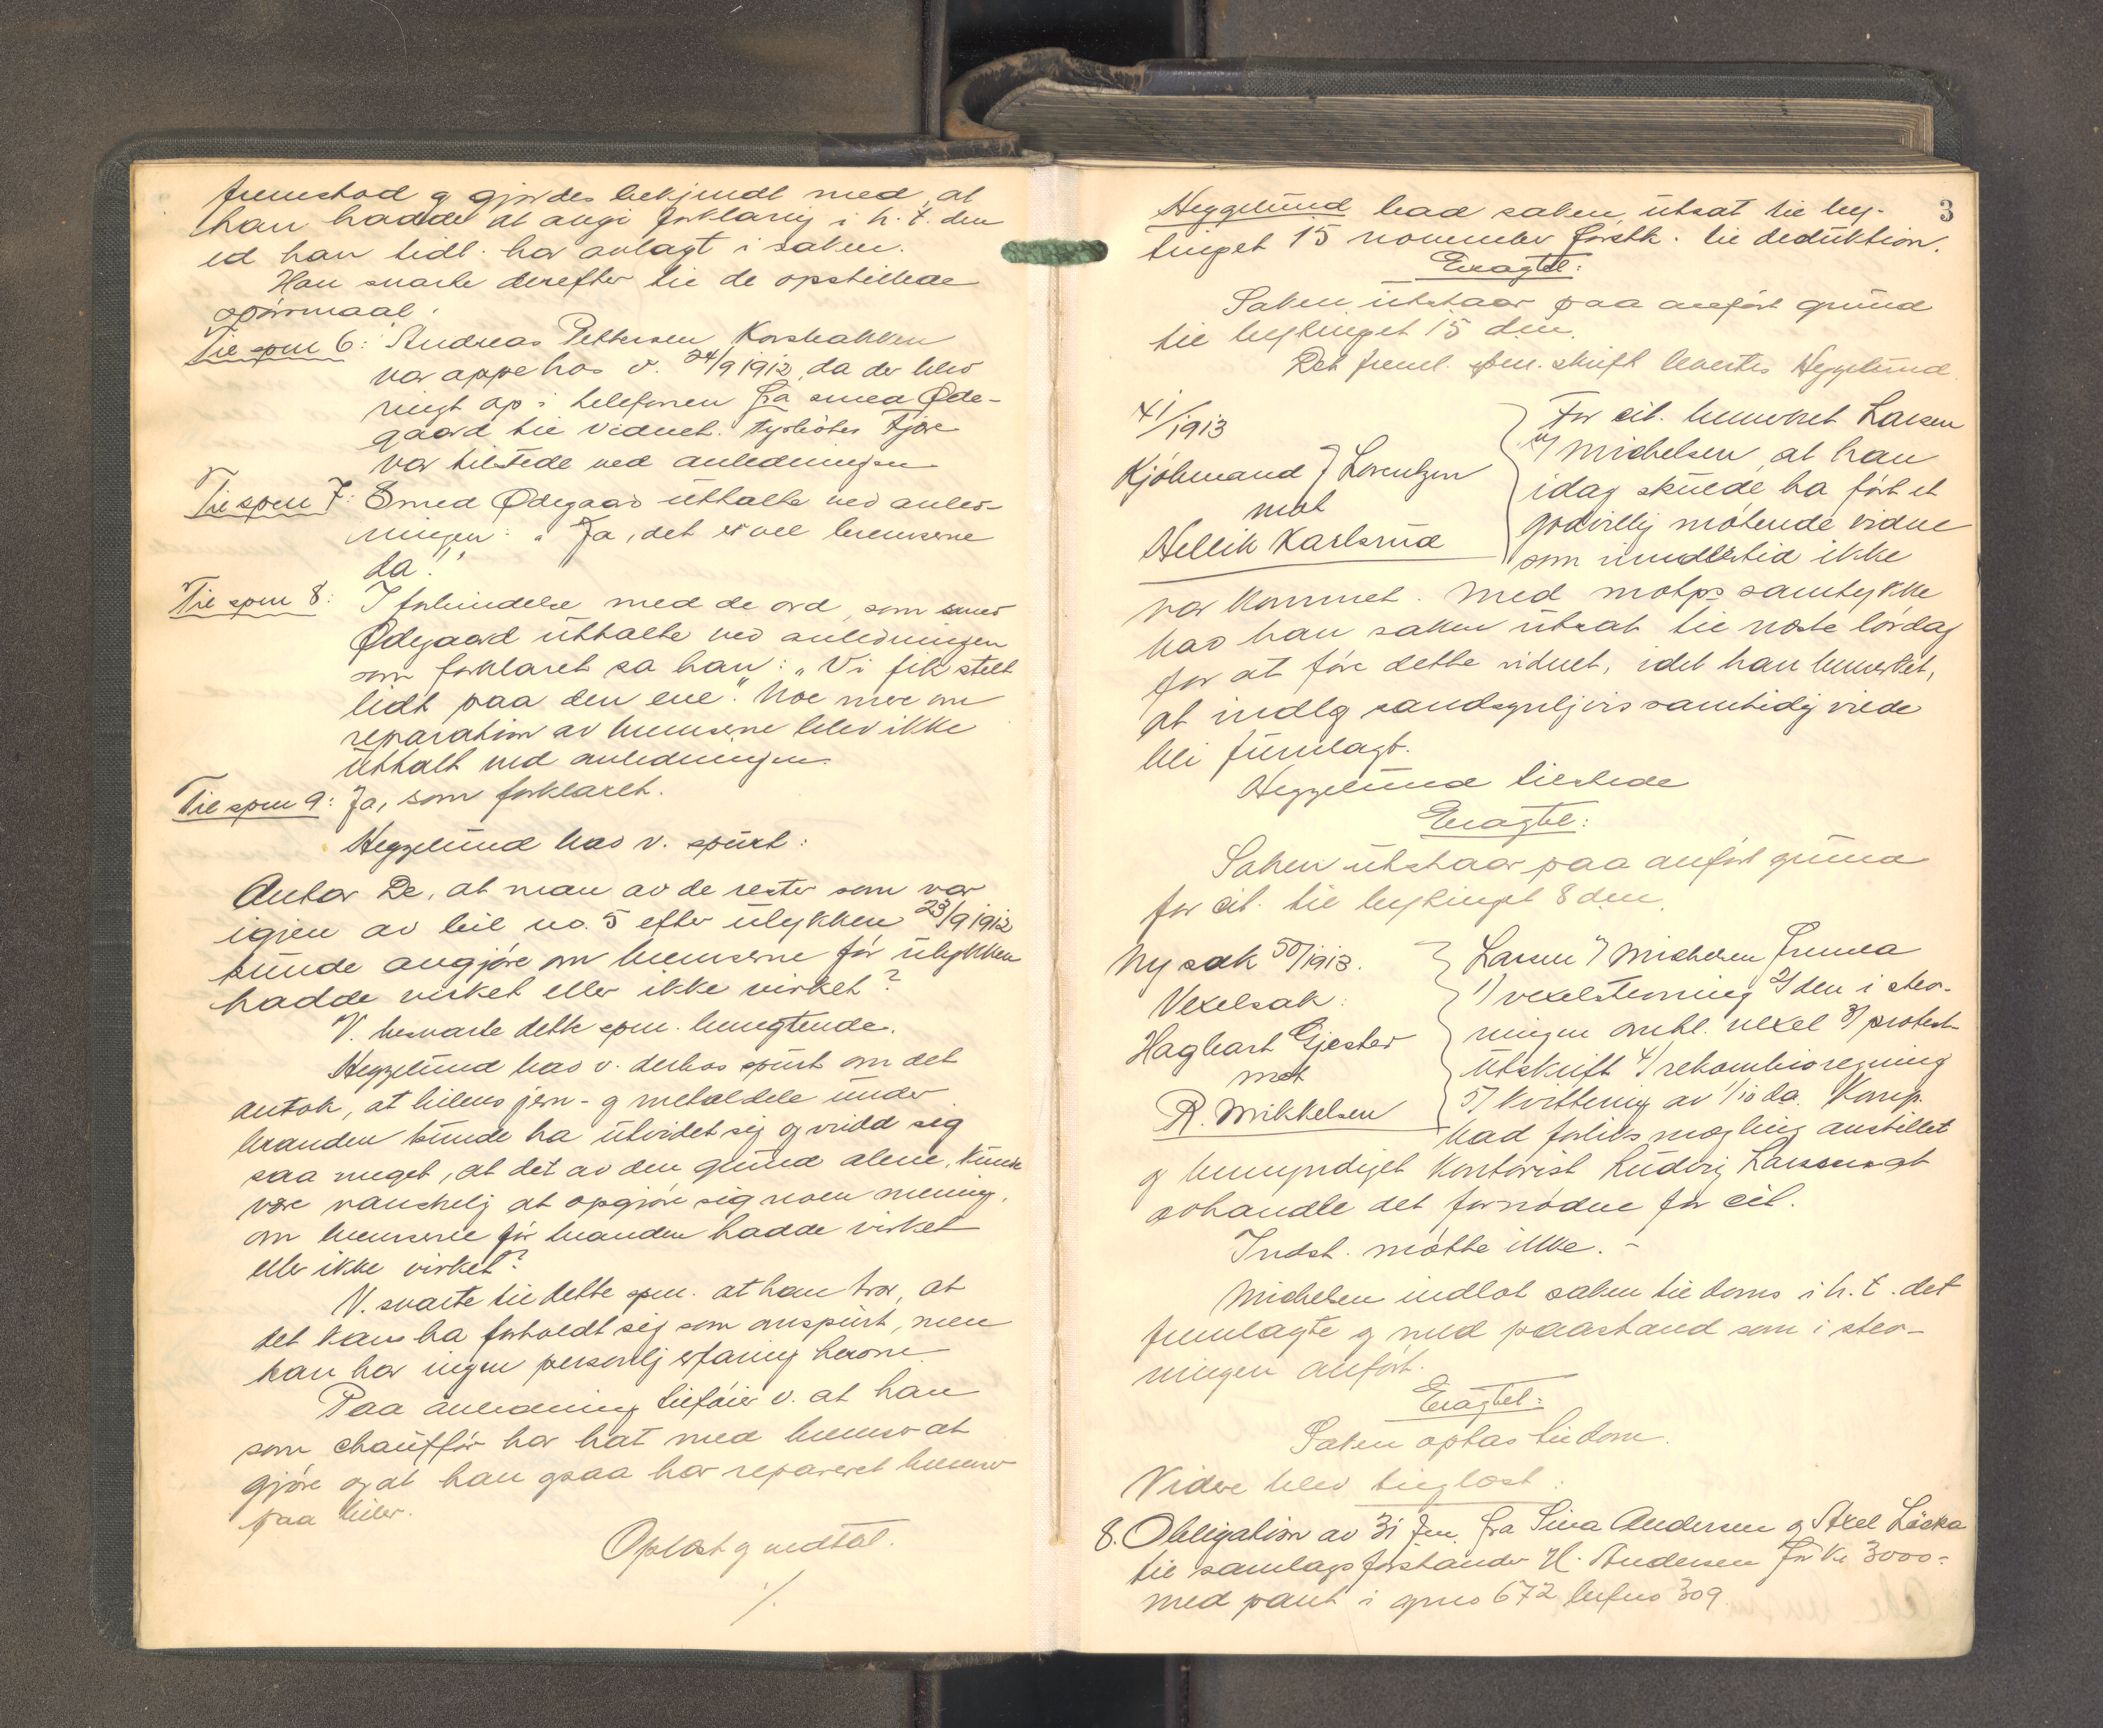 fremstod og gjordes bekjendt med, at
han hadde at avgi forklaring i h. t. den
ed han tidl. har avlagt i saken.
Han svarte derefter til de opstillede
spörsmaal:
Til spm 6: Andreas Pettersen Korsbakken
var oppe hos v. 24/9 1912, da der blev
ringt op i telefonen fra smed Øde-
gaard til vidnet. Fyrbøter Fjære
var tilstede ved anledningen
Til spm 7: Smed Ødegaard uttalte ved anled-
ningen: „Ja, det er vel bremserne
da!"
Til spm 8: I forbindelse med de ord, som smed
Ødegaard uttalte ved anledningen
som forklaret sa han: „Vi fik stelt
lidt paa den ene". Noe mere om
reparation av bremserne blev ikke
uttalt ved anledningen
Til spm 9: Ja, som forklaret.
Heggelund bad v. spurt:
Antar De, at man av de rester som var
igjen av bil no. 5 efter ulykken 23/9 1912
kunde avgjöre om bremserne för ulykken
hadde virket eller ikke virket?
V. besvarte dette spm. benegtende.
Heggelund bad v. derhos spurt om det
antok, at bilens jern- og metaldele under
branden kunde ha utvidet sig og vridd sig
saa meget, at det av den grund alene, kunde
være vanskelig at opgjöre sig noen mening,
om bremserne för branden hadde virket
eller ikke virket?
V. svarte til dette spm. at han tror, at
det kan ha forholdt sig som omspurt, men
han har ingen personlig erfaring herom.
Paa anledning tilföier v. at han
som chaufför har hat med bremser at
gjöre og at han ogsaa har reparert bremser
paa biler.
Oplæst og vedtat.
./.
3
Heggelund bad saken utsat til by-
tinget 15 november förstk. til deduktion.
Eragtet:
Saken utstaar paa anfört grund
til bytinget 15 dm.
Det freml. spm. skrift levertes Heggelund.
41/1913
Kjöbmand J Lorentzen
mot
Hellik Karlsrud
For cit. bemerket Larsen
v/ Michelsen, at han
idag skulde ha fört et
godvillig mötende vidne
som imidlertid ikke
var kommet. Med motps samtykke
bad han saken utsat til næste lördag
for at före dette vidnet, idet han bemerket,
at indlg sandsynligvis samtidig vilde
bli fremlagt.
Heggelund tilstede
Eragtet:
Saken utstaar paa anfört grund
for cit. til bytinget 8 dm.
Ny sak 50/1913.
Vexelsak:
Hagbart Gjester
mot
R. Mikkelsen
Larsen v/ Michelsen freml
1/ vexelstevning 2/ den i stev-
ningen omhl. vexel 3/ protest-
utskrift 4/ rekambioregning
5/ kvittering av 1/10 da. Komp.
bad forliksmægling anstillet
og bemyndiget kontorist Ludvig Larsen at
avhandle det fornödne for cit.
Indst. mötte ikke. –
Michelsen indlot saken til doms i h. t. det
fremlagte og med paastand som i stev-
ningen anfört.
Eragtet:
Saken optas til dom.
Videre blev tinglæst:
8. Obligation av 31 Jan. fra Sina Andersen og Axel Läska
til samlagsforstander H. Andersen for kr 3000-
med pant i gno 672 bufno 309